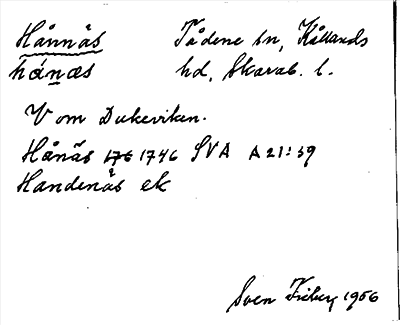 Hånnäs Tådene sn, Kållands
hánæs hd, Skarab. l.
V om Dukeviken.
Hånäs 1746 SVA A 21:39
Handenås ek
Sven Friberg 1956